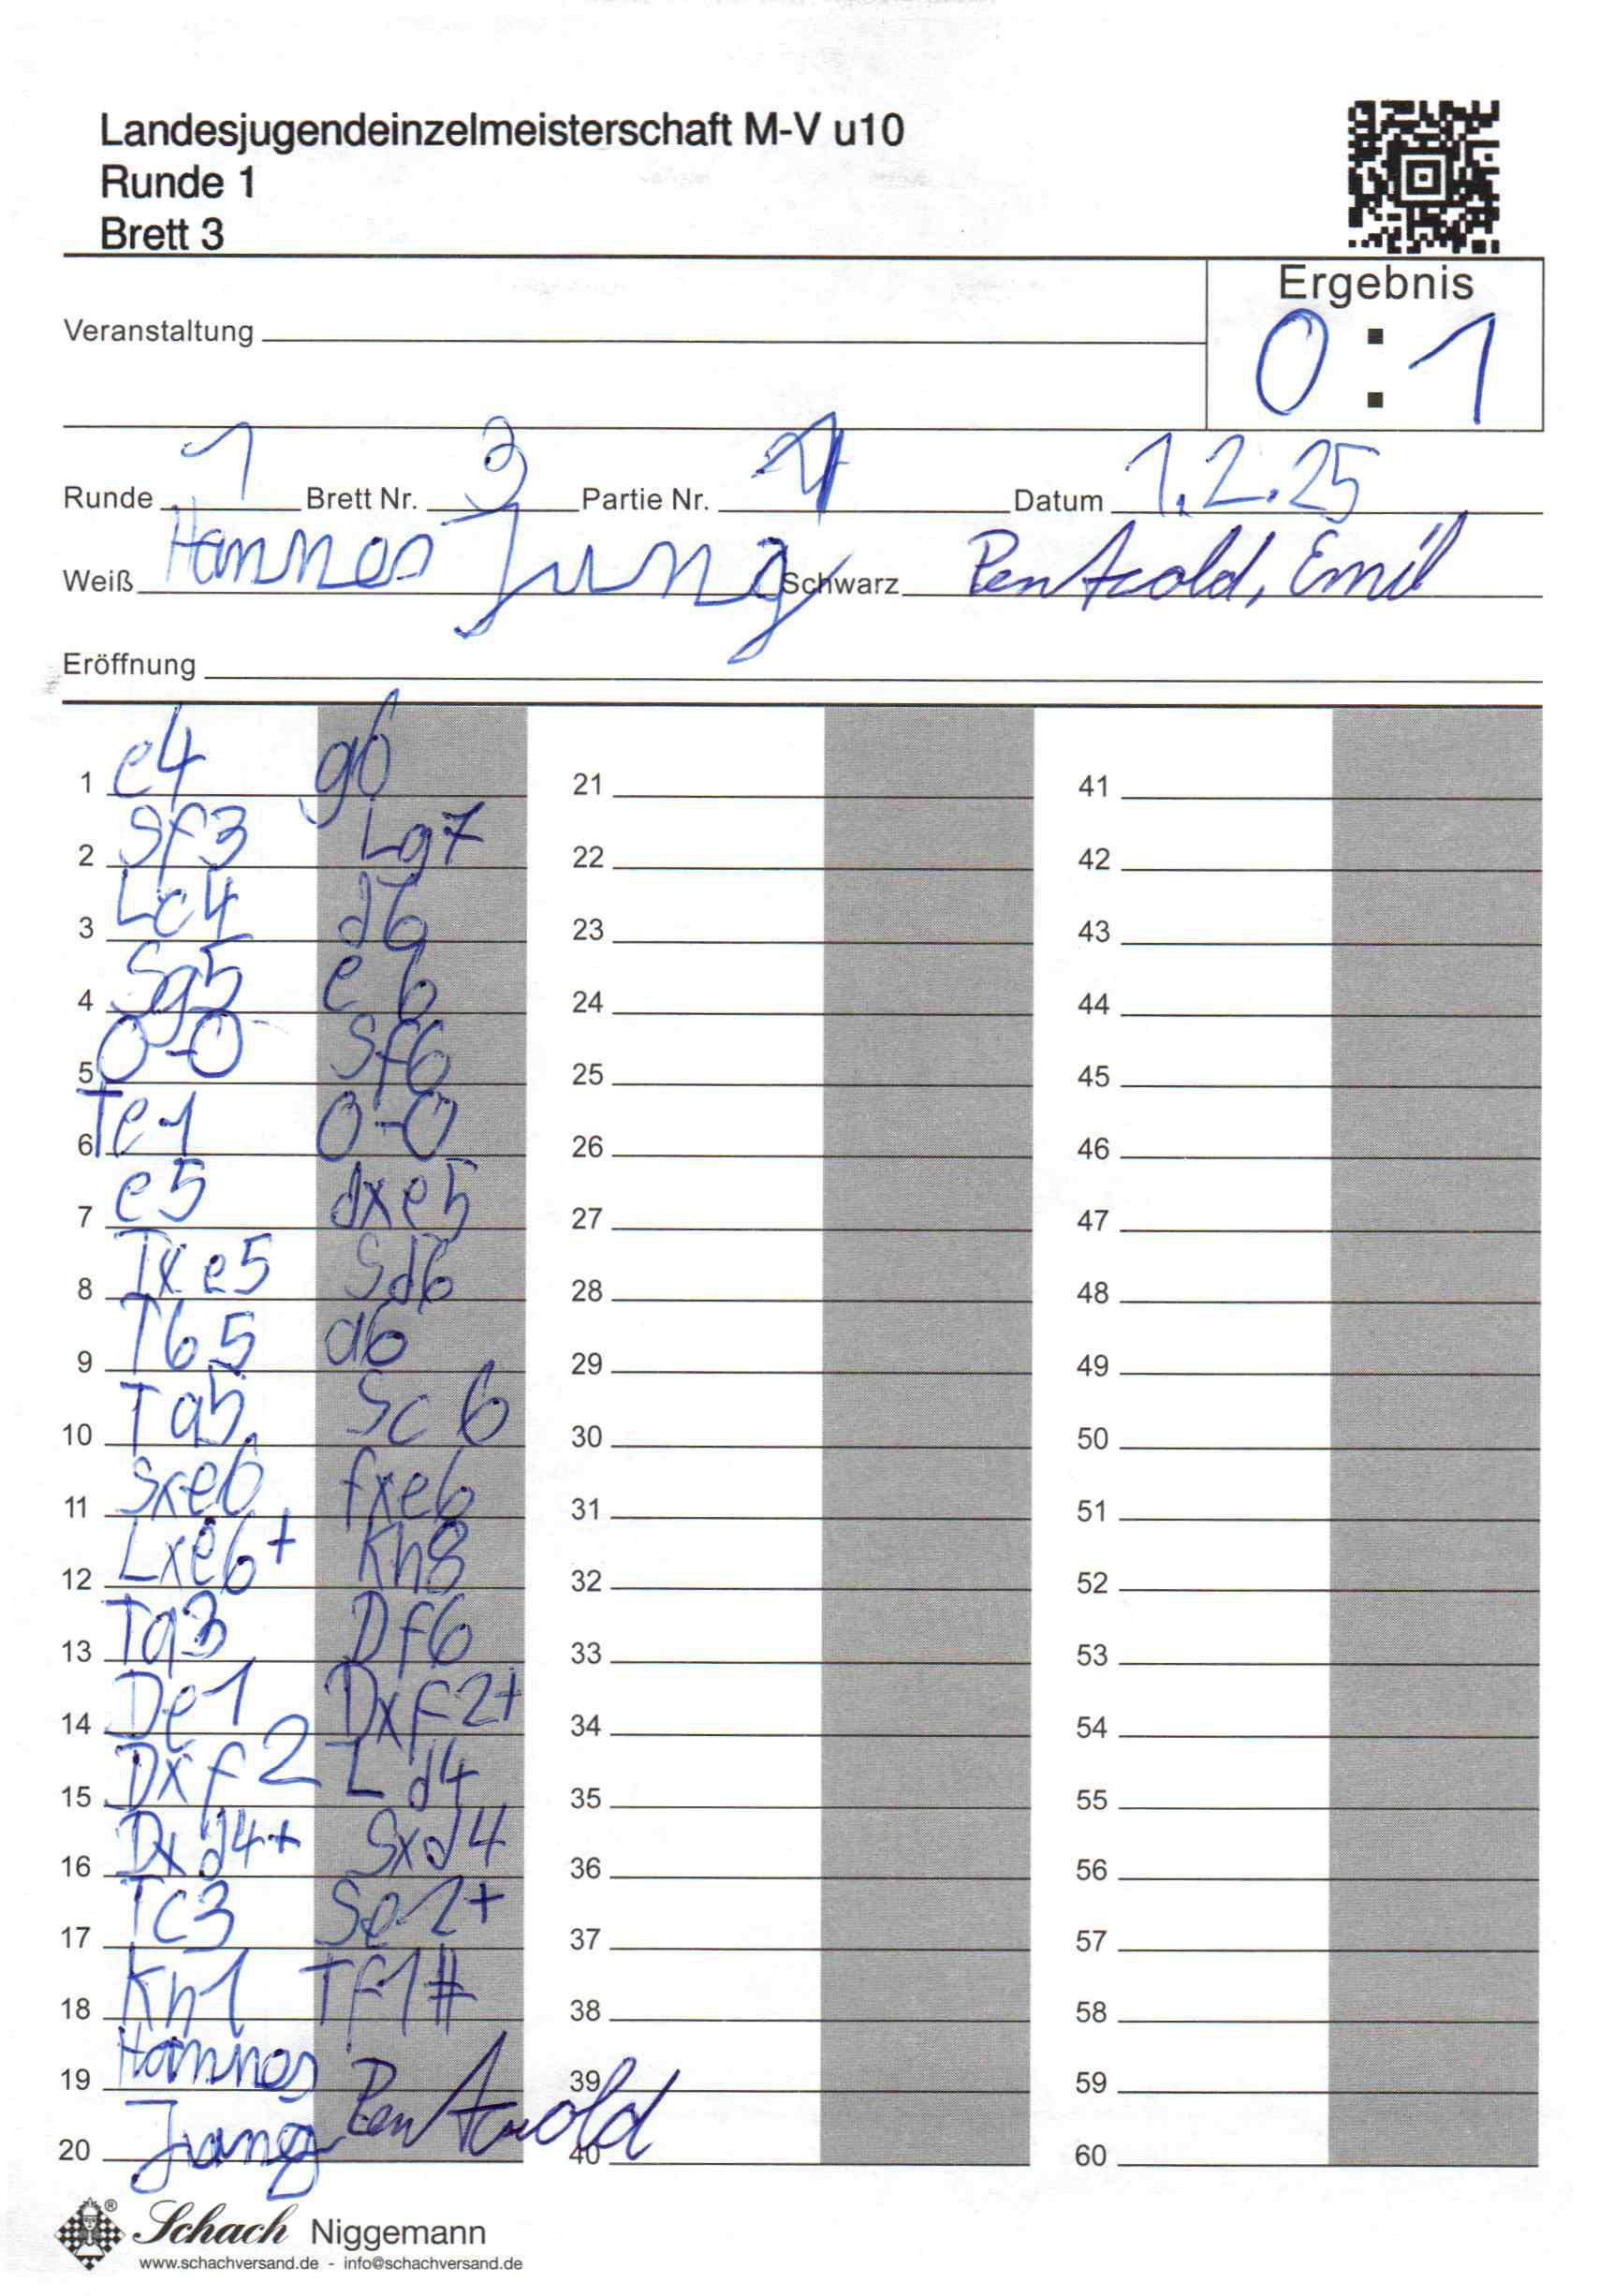 Landesjugendeinzelmeisterschaft M-V u10
Runde 1
Brett 3
Ergebnis
0 : 1
Veranstaltung
Runde 1 Brett Nr. 3 Partie Nr. 1 Datum 1.2.25
Weiß Hannes Jung Schwarz Pentzold, Emil
Eröffnung
1 e4 g6 21 41
2 Sf3 Lg7 22 42
3 Lc4 d6 23 43
4 Sg5 e6 24 44
5 0-0 Sf6 25 45
6 Te1 0-0 26 46
7 e5 dxe5 27 47
8 Txe5 Sd6 28 48
9 Tb5 a6 29 49
10 Ta5 Sc6 30 50
11 Sxe6 fxe6 31 51
12 Lxe6+ Kh8 32 52
13 Ta3 Df6 33 53
14 De1 Dxf2+ 34 54
15 Dxf2 Ld4 35 55
16 Dxd4+ Sxd4 36 56
17 Tc3 Se2+ 37 57
18 Kh1 Tf1# 38 58
19 Hannes Pentzold 39 59
20 Jung 40 60
Schach Niggemann
www.schachversand.de - info@schachversand.de